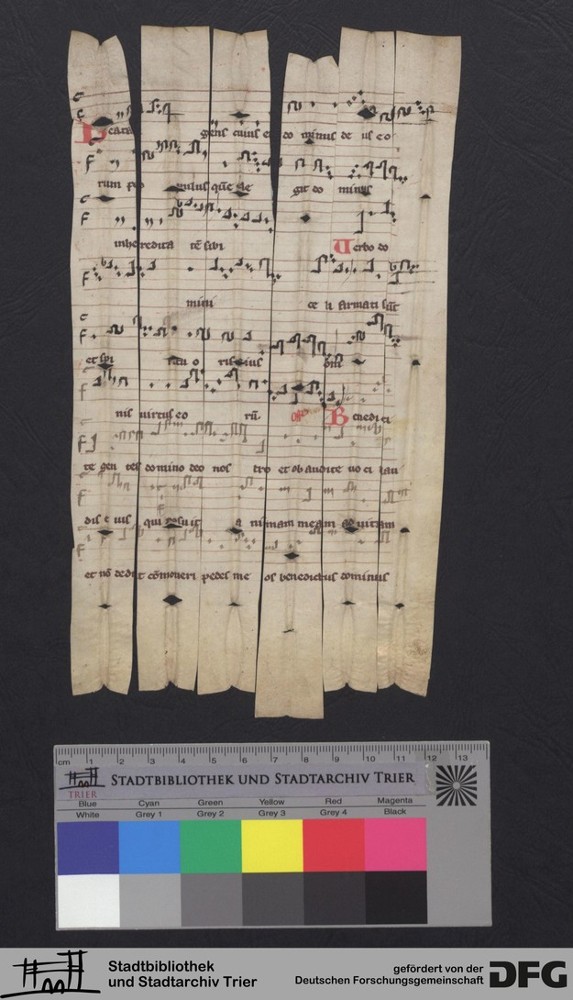 Beata gens cuius e do minus de us eo
rum po pulus quē ele git do minus
in heredita tē sibi Uerbo do
mini ce li firmati sūt
et spi ritu o ris eius om
nis uirtus eo rū. off Benedici
te gen tes domino deo nos tro et ob audite uo ci lau
dis e ius qui posuit a nimam meam ad uitam
et nō dedit cōmoueri pedes me os benedictus dominus
cm 1 2 3 4 5 6 7 8 9 10 11 12 13
TRIER
STADTBIBLIOTHEK UND STADTARCHIV TRIER
Blue Cyan Green Yellow Red Magenta
White Grey 1 Grey 2 Grey 3 Grey 4 Black
Stadtbibliothek
und Stadtarchiv Trier
gefördert von der
Deutschen Forschungsgemeinschaft
DFG